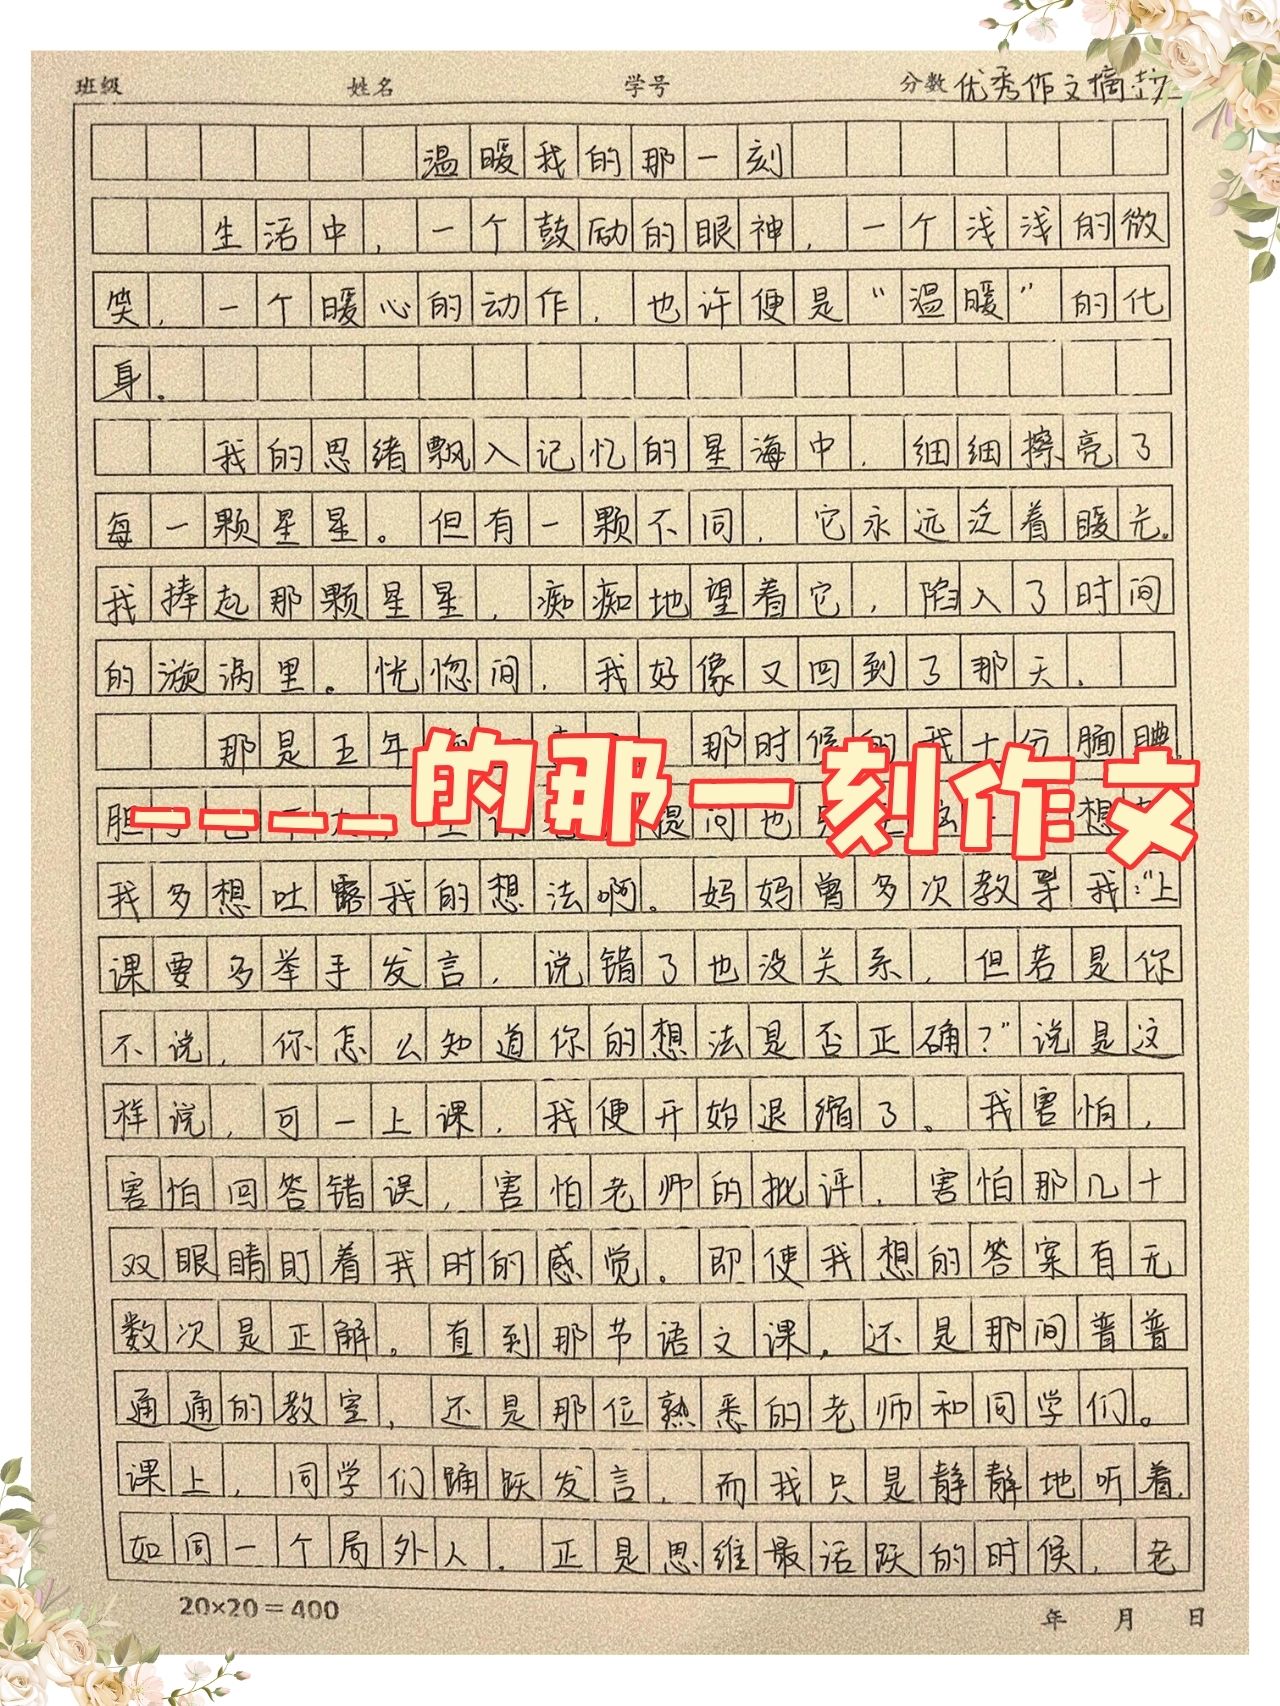 班级 姓名 学号 分数 优秀作文摘抄
温暖我的那一刻
生活中，一个鼓励的眼神，一个浅浅的微
笑，一个暖心的动作，也许便是“温暖”的化
身。
我的思绪飘入记忆的星海中，细细擦亮了
每一颗星星。但有一颗不同，它永远泛着暖光。
我捧起那颗星星，痴痴地望着它，陷入了时间
的漩涡里。恍惚间，我好像又回到了那天，
那是五年 那时候的我十分腼腆，
----的那一刻作文
胆 提问也 想
我多想吐露我的想法啊。妈妈曾多次教导我：“上
课要多举手发言，说错了也没关系，但若是你
不说，你怎么知道你的想法是否正确？”说是这
样说，可一上课，我便开始退缩了。我害怕，
害怕回答错误，害怕老师的批评，害怕那几十
双眼睛盯着我时的感觉。即使我想的答案有无
数次是正解。直到那节语文课，还是那间普普
通通的教室，还是那位熟悉的老师和同学们。
课上，同学们踊跃发言，而我只是静静地听着，
如同一个局外人。正是思维最活跃的时候，老
20×20=400 年 月 日